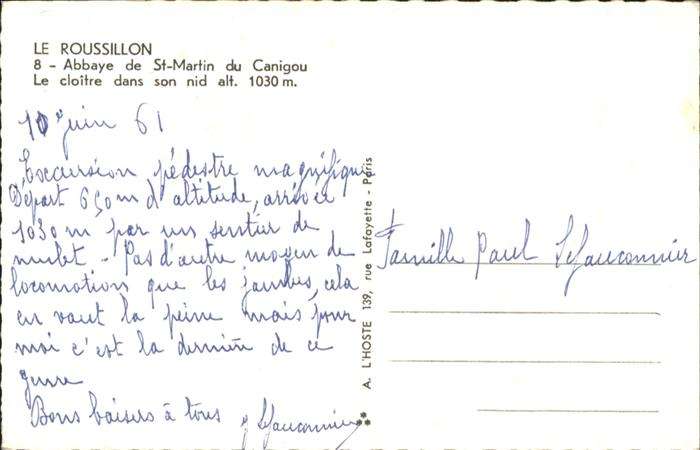 LE ROUSSILLON
8 - Abbaye de St-Martin du Canigou
Le cloître dans son nid alt. 1030 m.
juin 61
Excursion pédestre magnifique
Départ 650 m d'altitude, arrivée
1030 m par un sentier de
mulet - Pas d'autre moyen de
locomotion que les jambes, cela
en vaut la peine mais pour
moi c'est la dernière de ce
genre
Bons baisers à tous Lefauconnier
A. L'HOSTE 139, rue Lafayette - Paris
Famille Paul Lefauconnier